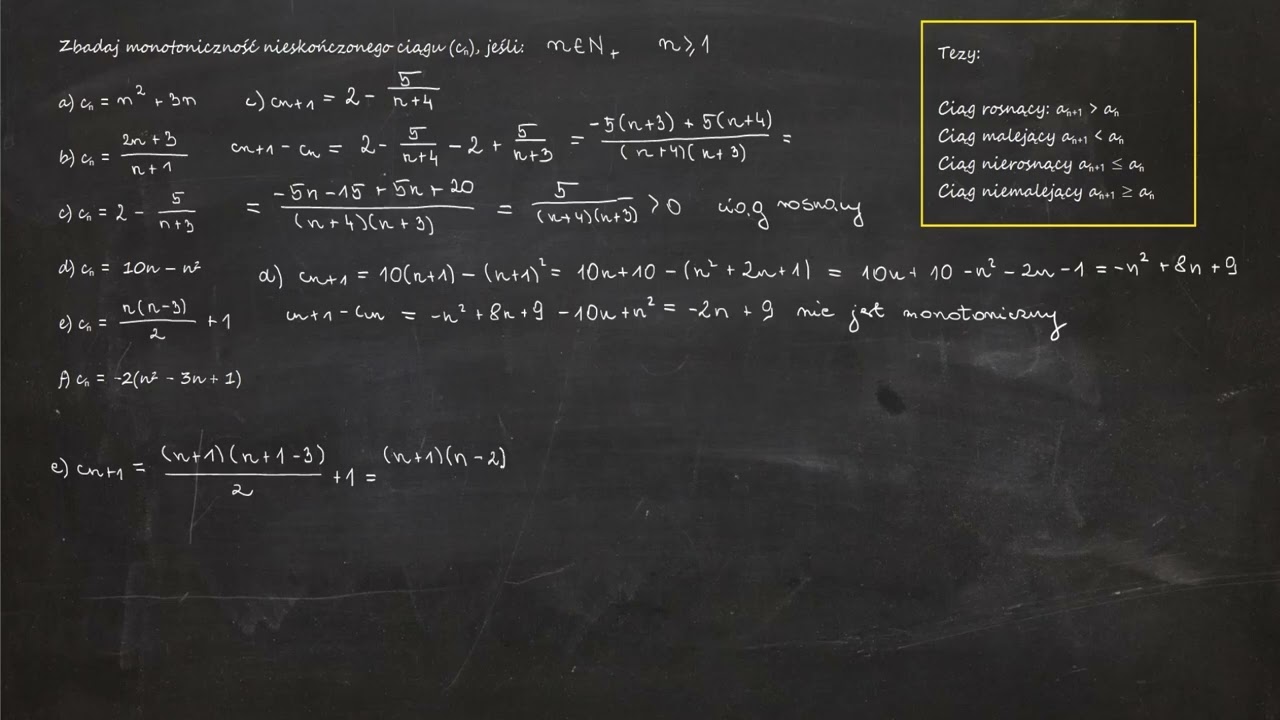 Zbadaj monotoniczność nieskończonego ciągu (cₙ), jeśli: n∈N₊ n⩾1
a) cₙ = n² + 3n
b) cₙ = (2n+3)/(n+1)
c) cₙ = 2 - 5/(n+3)
d) cₙ = 10n - n²
e) cₙ = n(n-3)/2 + 1
f) cₙ = -2(n² - 3n + 1)
c) cn+1 = 2 - 5/(n+4)
cn+1 - cn = 2 - 5/(n+4) - 2 + 5/(n+3) = (-5(n+3) + 5(n+4))/((n+4)(n+3)) =
= (-5n - 15 + 5n + 20)/((n+4)(n+3)) = 5/((n+4)(n+3)) > 0 ciąg rosnący
d) cn+1 = 10(n+1) - (n+1)² = 10n+10 - (n² + 2n+1) = 10n + 10 - n² - 2n - 1 = -n² + 8n + 9
cn+1 - cn = -n² + 8n + 9 - 10n + n² = -2n + 9 nie jest monotoniczny
e) cn+1 = (n+1)(n+1-3)/2 + 1 = (n+1)(n-2)
Tezy:
Ciąg rosnący: aₙ₊₁ > aₙ
Ciąg malejący aₙ₊₁ < aₙ
Ciąg nierosnący aₙ₊₁ ≤ aₙ
Ciąg niemalejący aₙ₊₁ ≥ aₙ